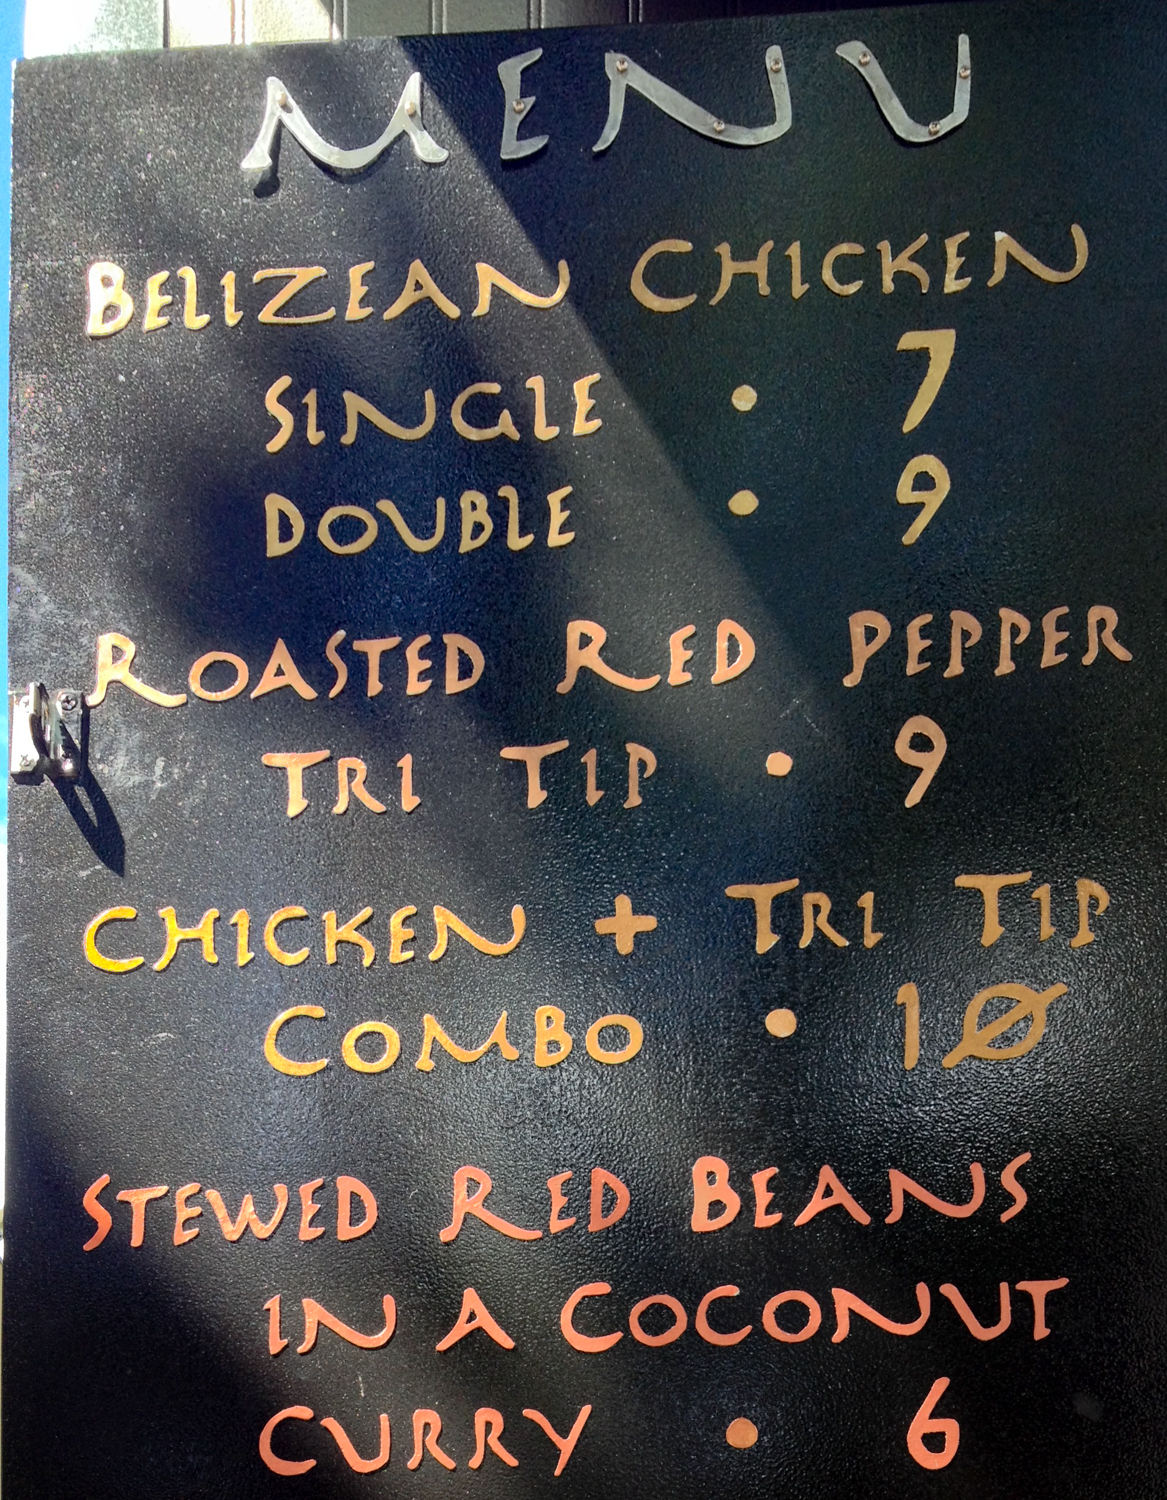 MENU
BELIZEAN CHICKEN
SINGLE • 7
DOUBLE • 9
ROASTED RED PEPPER
TRI TIP • 9
CHICKEN + TRI TIP
COMBO • 10
STEWED RED BEANS
IN A COCONUT
CURRY • 6